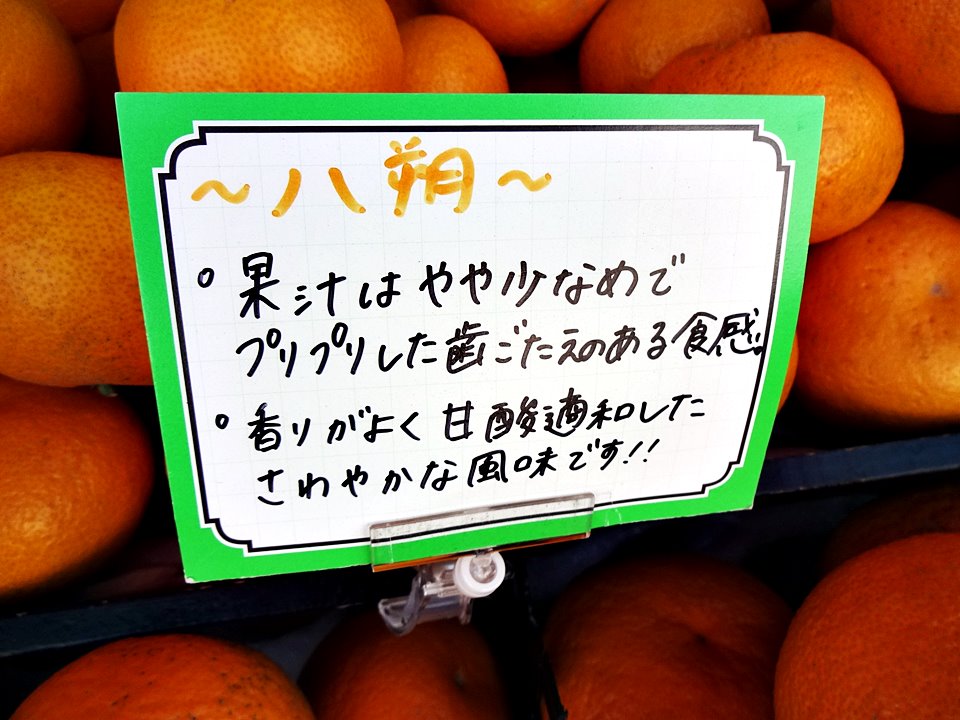 ～八朔～
○果汁はやや少なめで
プリプリした歯ごたえのある食感。
○香りがよく甘酸適和した
さわやかな風味です!!